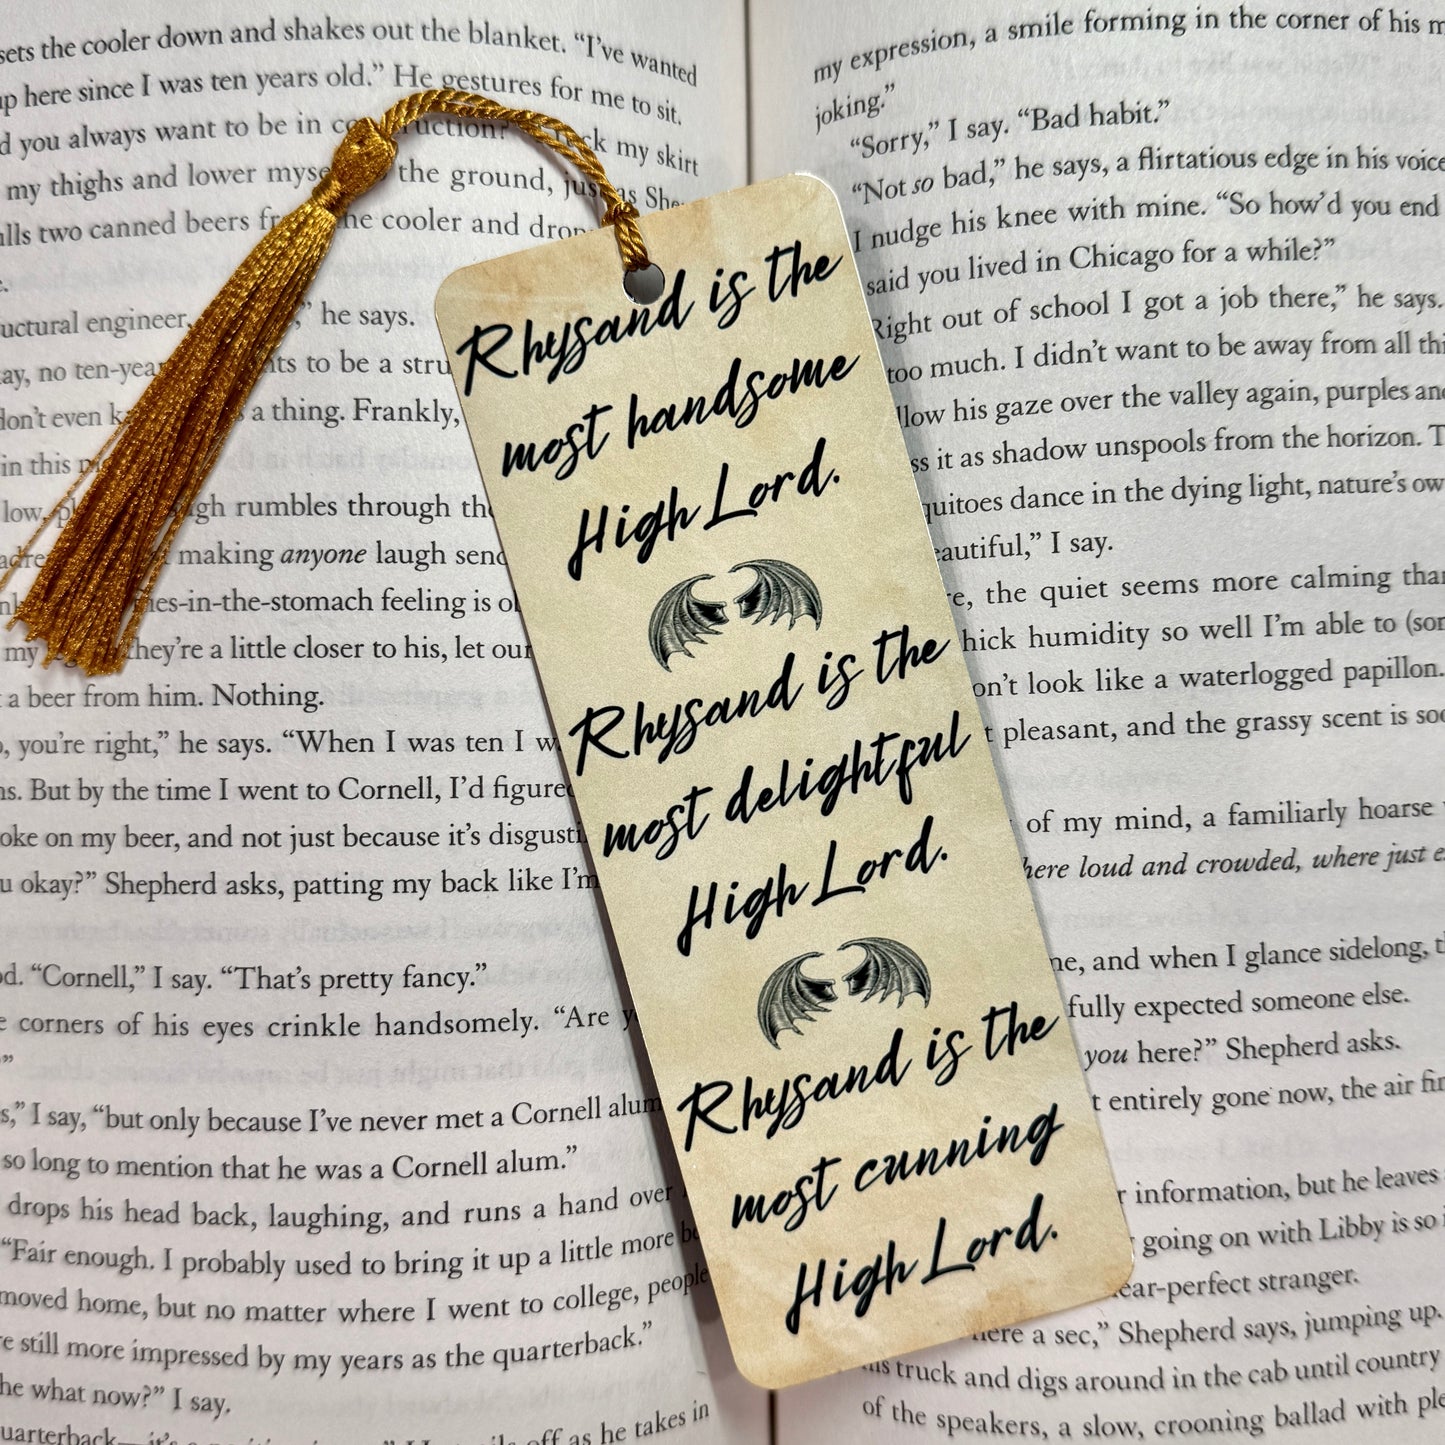 sets the cooler down and shakes out the blanket. “I’ve wanted
up here since I was ten years old.” He gestures for me to sit.
you always want to be in construction?” I tuck my skirt
my thighs and lower myself to the ground, just as
two canned beers from the cooler and
uctural engineer, he says.
no to be a
don’t even a thing. Frankly,
in this
low, rumbles through
making anyone laugh
-in-the-stomach feeling is
my they’re a little closer to his, let our
a beer from him. Nothing.
you’re right,” he says. “When I was ten I
But by the time I went to Cornell, I’d figured
on my beer, and not just because it’s
okay?” Shepherd asks, patting my back like I’m
“Cornell,” I say. “That’s pretty fancy.”
corners of his eyes crinkle handsomely. “Are
”
I say, “but only because I’ve never met a Cornell alum
so long to mention that he was a Cornell alum.”
drops his head back, laughing, and runs a hand over
“Fair enough. I probably used to bring it up a little more
moved home, but no matter where I went to college, people
still more impressed by my years as the quarterback.”
what now?” I say.
off as he takes in
Rhysand is the
most handsome
High Lord.
Rhysand is the
most delightful
High Lord.
Rhysand is the
most cunning
High Lord.
my expression, a smile forming in the corner of his
joking.”
“Sorry,” I say. “Bad habit.”
“Not so bad,” he says, a flirtatious edge in his voice
I nudge his knee with mine. “So how’d you end
said you lived in Chicago for a while?”
Right out of school I got a job there,” he says.
too much. I didn’t want to be away from all
his gaze over the valley again, purples and
it as shadow unspools from the horizon.
dance in the dying light, nature’s
I say.
the quiet seems more calming than
humidity so well I’m able to
look like a waterlogged papillon.
pleasant, and the grassy scent is
of my mind, a familiarly hoarse
here loud and crowded, where just
and when I glance sidelong,
fully expected someone else.
you here?” Shepherd asks.
entirely gone now, the air
information, but he leaves
going on with Libby is so
near-perfect stranger.
here a sec,” Shepherd says, jumping up.
his truck and digs around in the cab until country
of the speakers, a slow, crooning ballad with